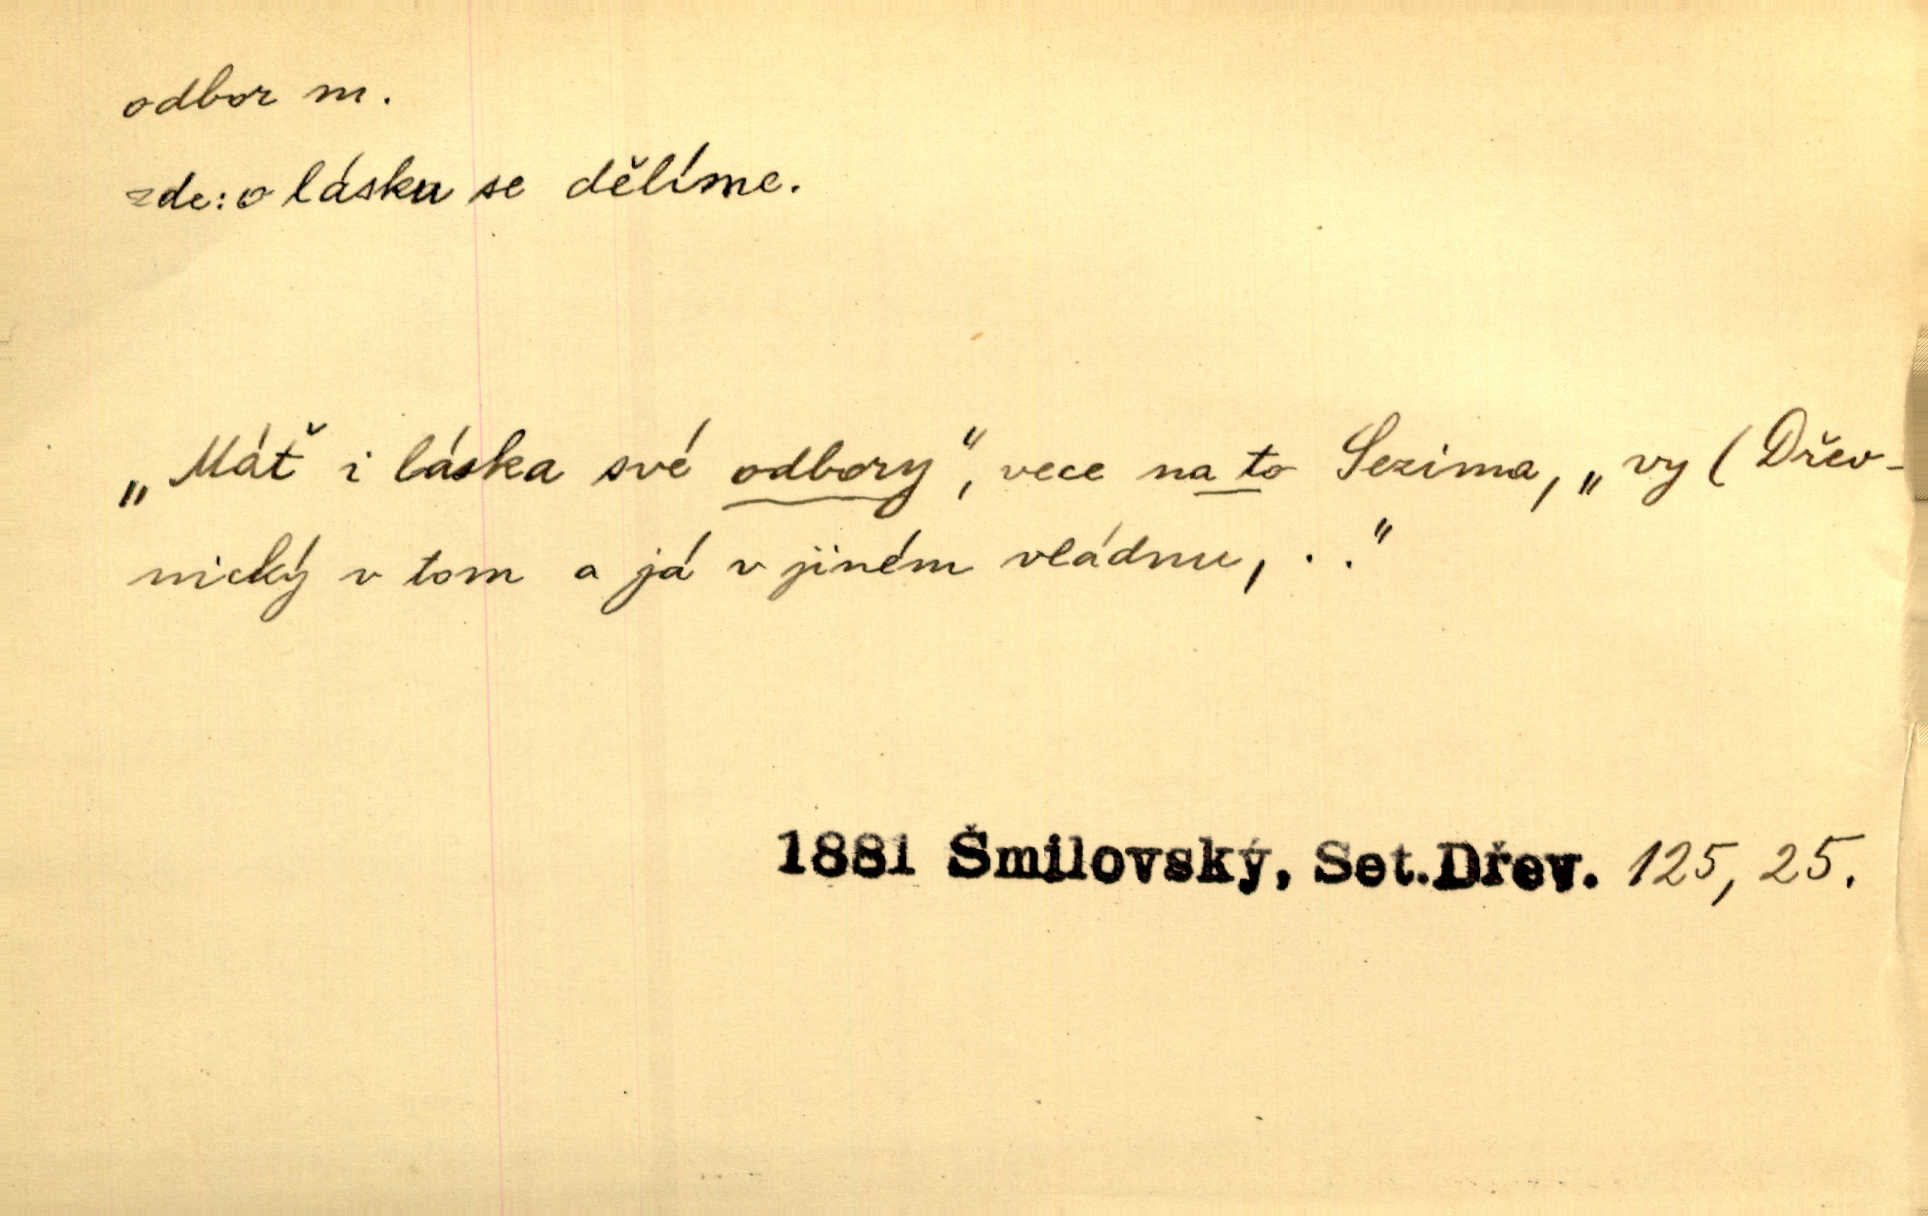 odbor m.
zde: o lásku se dělíme.
„Máť i láska své odbory“, vece na to Sezima, „vy (Dřev-
nický v tom a já v jiném vládnu, . .“
1881 Šmilovský, Set.Dřev. 125, 25.